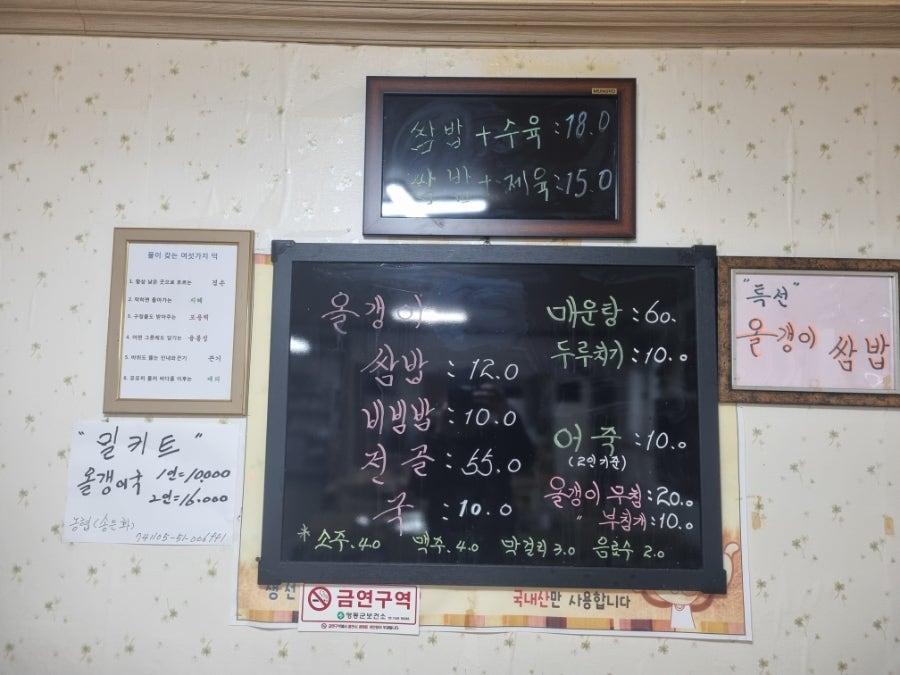 MUNGYO
쌈밥+수육:18.0
쌈밥+제육:15.0
물이 갖는 여섯가지 덕
1. 항상 낮은 곳으로 흐르는 겸손
2. 막히면 돌아가는 지혜
3. 구정물도 받아주는 포용력
4. 어떤 그릇에도 담기는 융통성
5. 바위도 뚫는 인내와 끈기 끈기
6. 유유히 흘러 바다를 이루는 대의
올갱이
쌈밥 : 12.0
비빔밥 : 10.0
전골 : 55.0
국 : 10.0
매운탕 : 60.
두루치기 : 10.0
어죽 : 10.0
(2인기준)
올갱이 무침 : 20.0
" 부침개 : 10.0
*소주.4.0 맥주.4.0 막걸리 3.0 음료수 2.0
"특선"
올갱이 쌈밥
"밀키트"
올갱이국 1인=10,000
2인=16.000
농협(송은화)
생선
금연구역
영동군보건소
국내산만 사용합니다